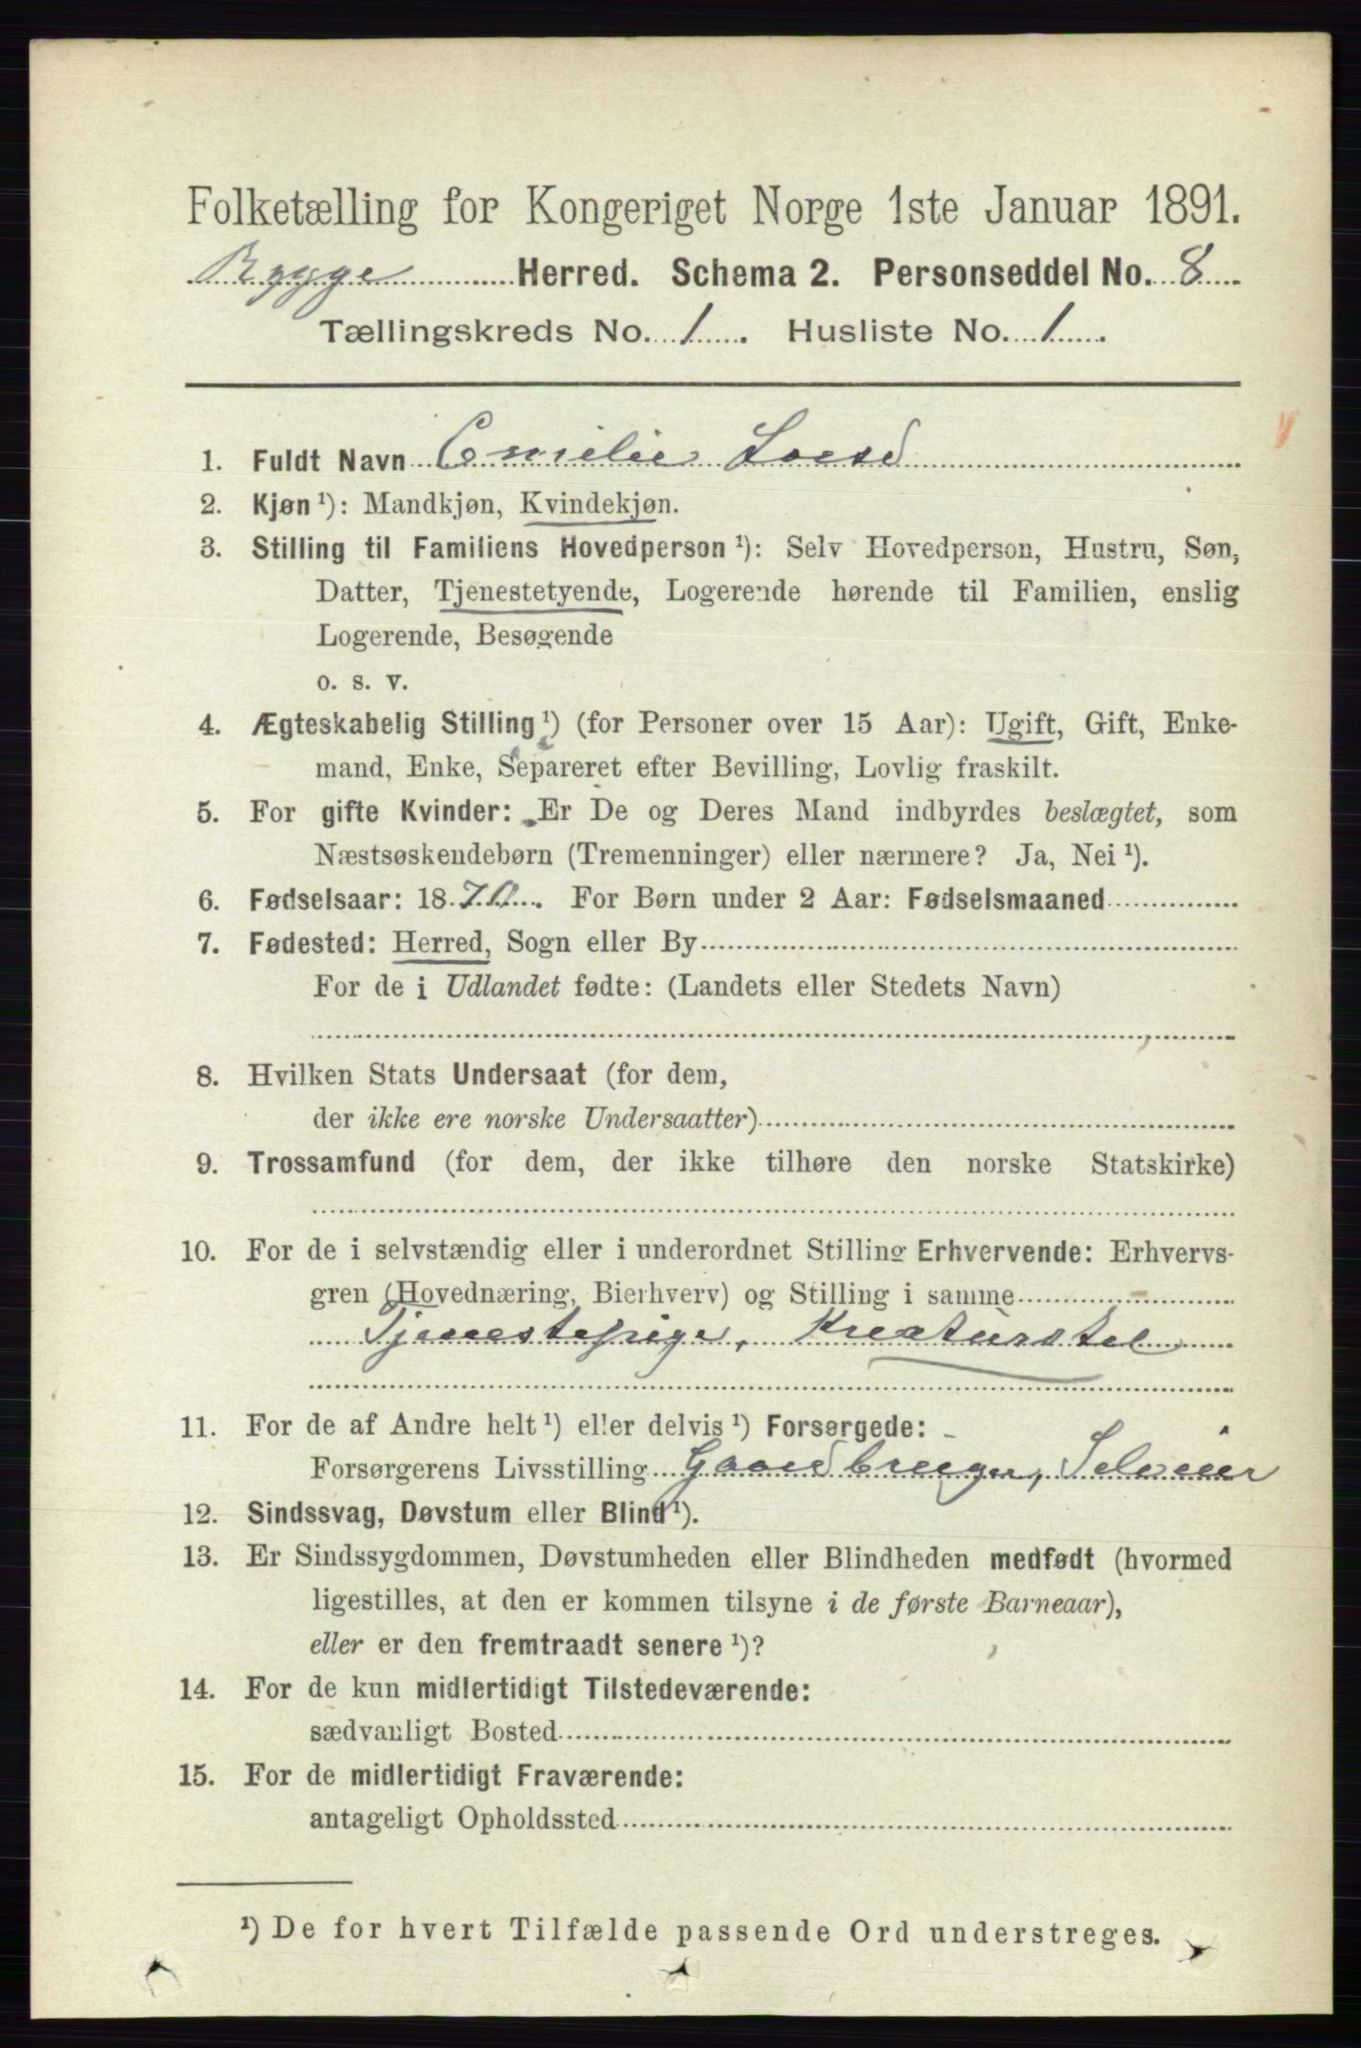 Folketælling for Kongeriget Norge 1ste Januar 1891.
Rygge Herred. Schema 2. Personseddel No. 8
Tællingskreds No. 1. Husliste No. 1.
1. Fuldt Navn Emilie
2. Kjøn ¹): Mandkjøn, Kvindekjøn.
3. Stilling til Familiens Hovedperson ¹): Selv Hovedperson, Hustru, Søn,
Datter, Tjenestetyende, Logerende hørende til Familien, enslig
Logerende, Besøgende
o. s. v.
4. Ægteskabelig Stilling ¹) (for Personer over 15 Aar): Ugift, Gift, Enke-
mand, Enke, Separeret efter Bevilling, Lovlig fraskilt.
5. For gifte Kvinder: Er De og Deres Mand indbyrdes beslægtet, som
Næstsøskendebørn (Tremenninger) eller nærmere? Ja, Nei ¹).
6. Fødselsaar: 1870. For Børn under 2 Aar: Fødselsmaaned
7. Fødested: Herred, Sogn eller By
For de i Udlandet fødte: (Landets eller Stedets Navn)
8. Hvilken Stats Undersaat (for dem,
der ikke ere norske Undersaatter)
9. Trossamfund (for dem, der ikke tilhøre den norske Statskirke)
10. For de i selvstændig eller i underordnet Stilling Erhvervende: Erhvervs-
gren (Hovednæring, Bierhverv) og Stilling i samme
Tjenestepige, Kreaturstel
11. For de af Andre helt ¹) eller delvis ¹) Forsørgede:
Forsørgerens Livsstilling Gaardbruger, Selveier
12. Sindssvag, Døvstum eller Blind ¹).
13. Er Sindssygdommen, Døvstumheden eller Blindheden medfødt (hvormed
ligestilles, at den er kommen tilsyne i de første Barneaar),
eller er den fremtraadt senere ¹)?
14. For de kun midlertidigt Tilstedeværende:
sædvanligt Bosted
15. For de midlertidigt Fraværende:
antageligt Opholdssted
¹) De for hvert Tilfælde passende Ord understreges.